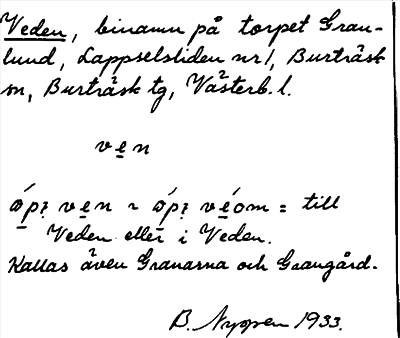 Veden, binamn på torpet Gran-
lund, Lappselsliden nr 1, Burträsk
sn, Burträsk tg, Västerb. l.
ven
åpɩ ven ~ åpɩ véom = till
Veden eller i Veden.
Kallas även Granarna och Grangård.
B. Nyppen 1933.